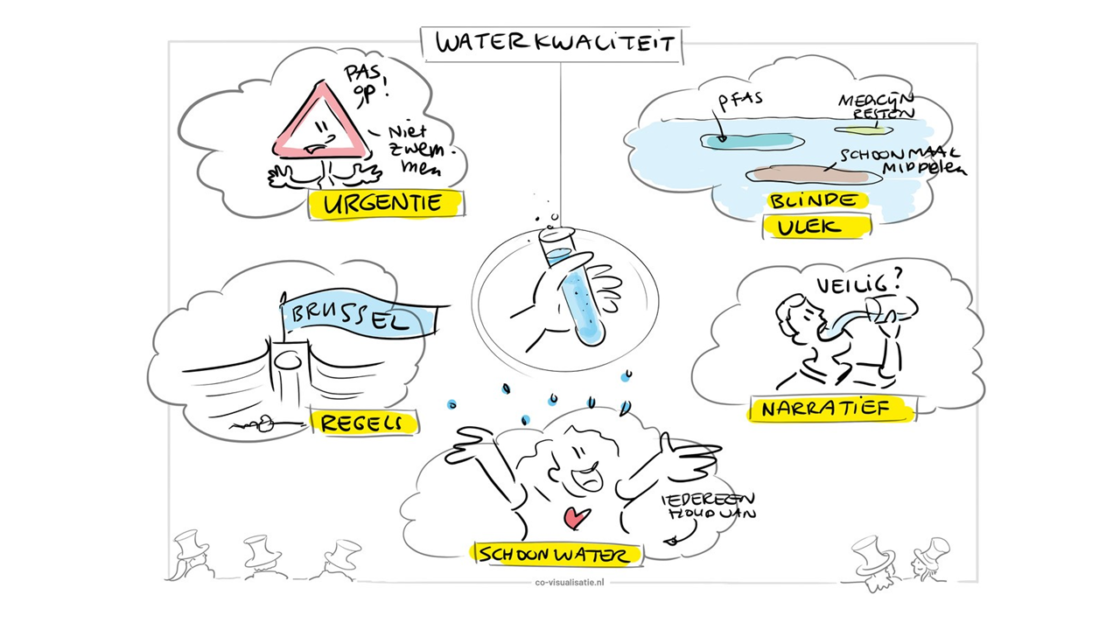 WATERKWALITEIT
PAS
OP!
Niet
zwem-
men
URGENTIE
PFAS
MEDICIJN
RESTEN
SCHOONMAAK
MIDDELEN
BLINDE
VLEK
BRUSSEL
REGELS
VEILIG?
NARRATIEF
IEDEREEN
HOUD VAN
SCHOON WATER
co-visualisatie.nl